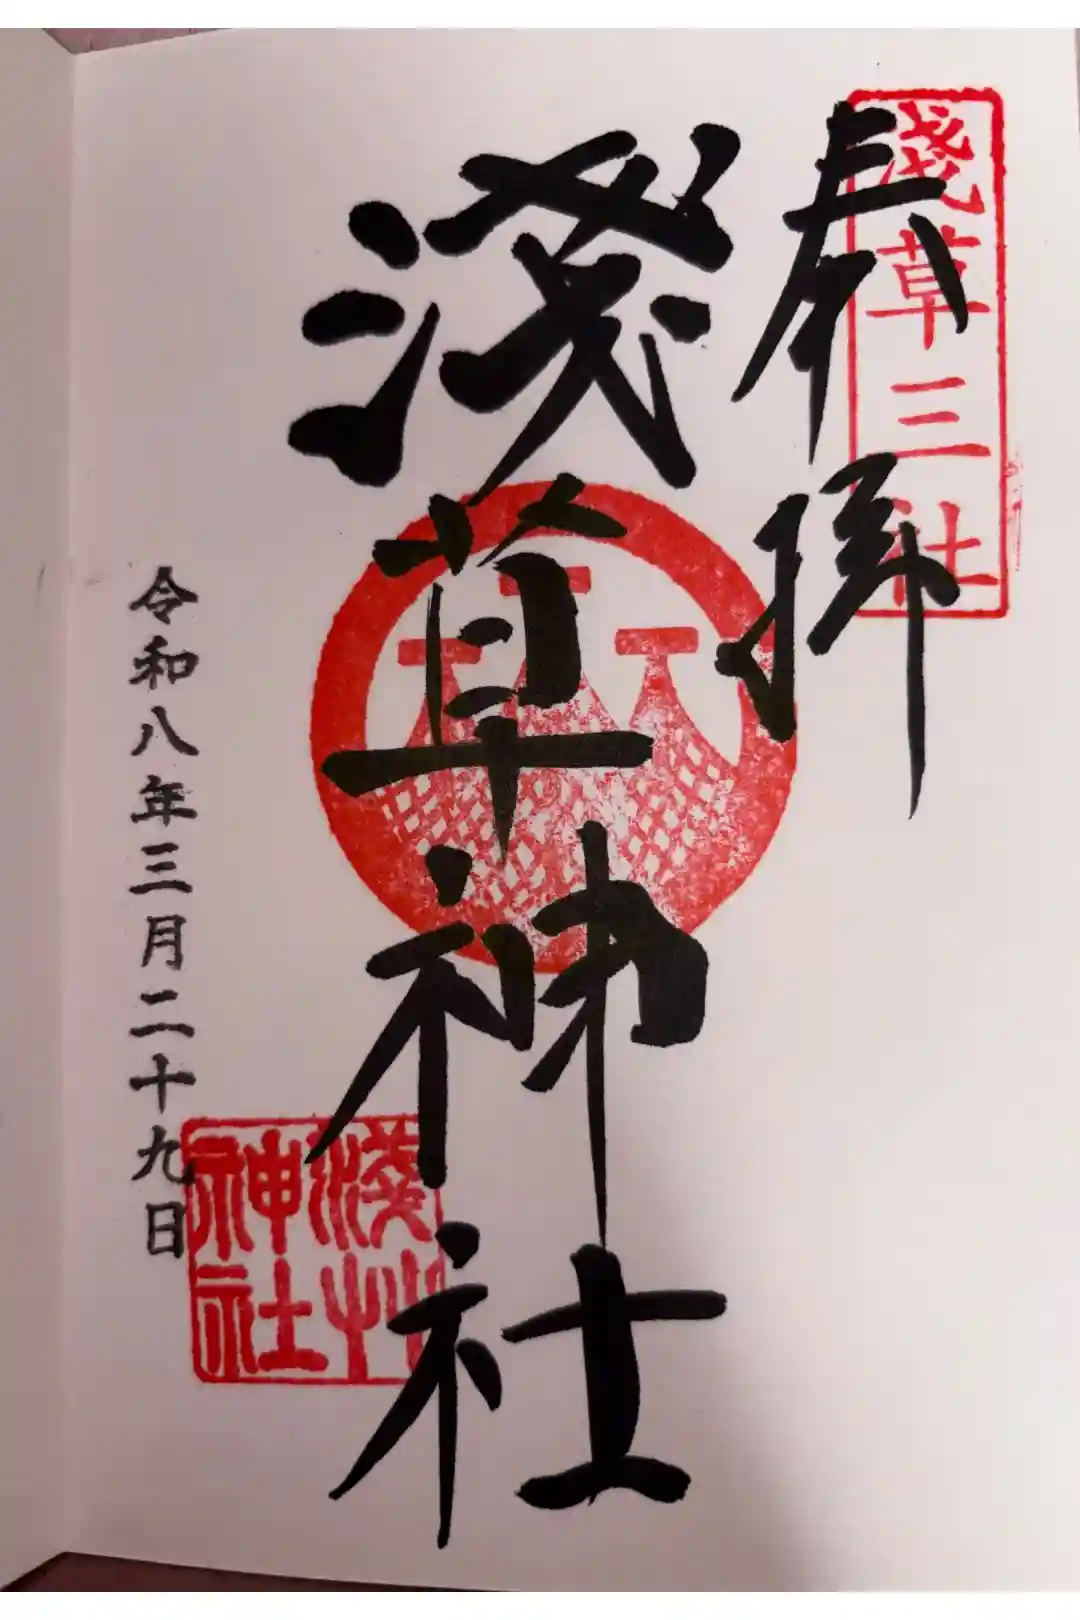 奉拝
淺草三社
淺草神社
淺艸神社
令和八年三月二十九日